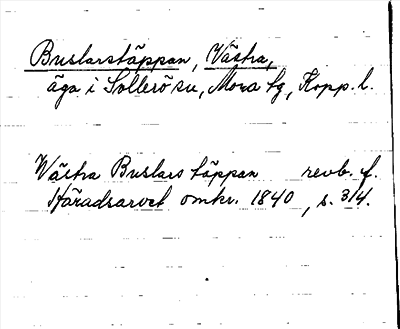 Buslarstäppan, Västra,
äga i Sollerö sn, Mora tg, Kopp. l.
Västra Buslars täppan revb. f.
Häradsarvet omkr. 1840, s. 314.